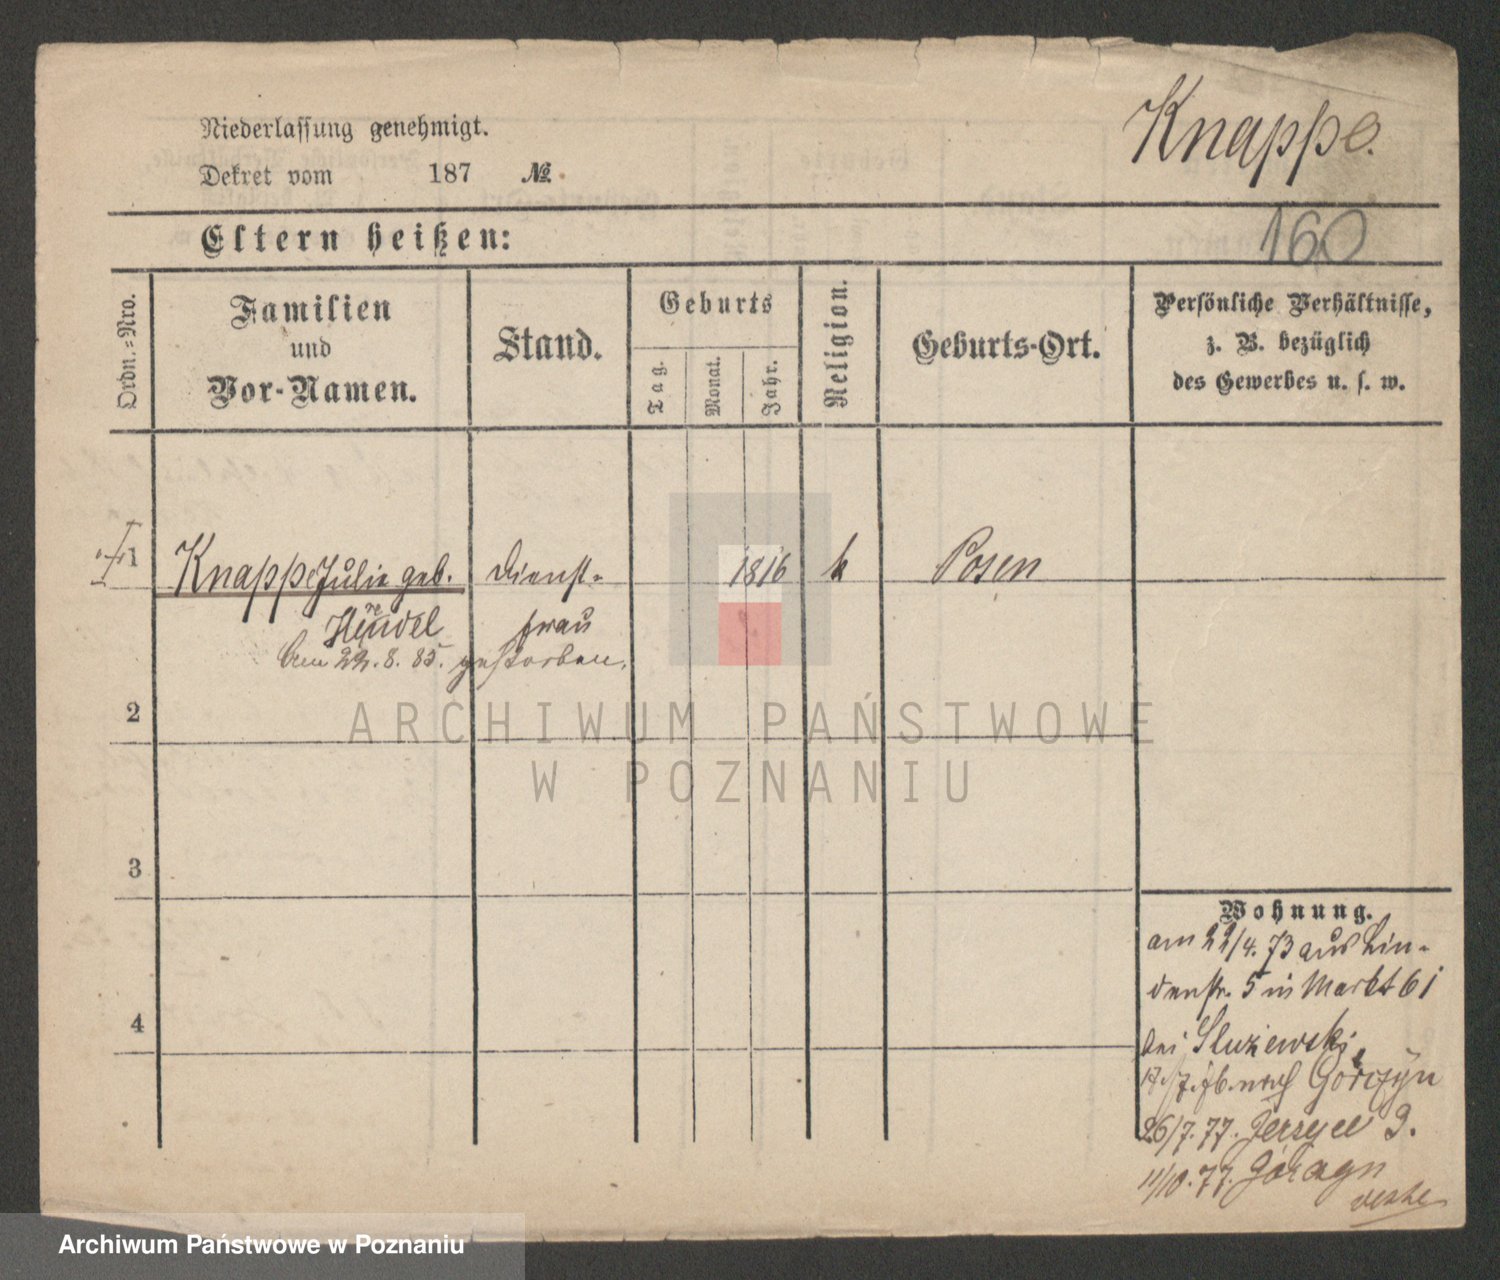 Knappe.
Niederlassung genehmigt.
Dekret vom 187 №
160
Eltern heißen:
Ordn.=Nro.
Familien
und
Vor-Namen.
Stand.
Geburts
Tag.
Monat.
Jahr.
Religion.
Geburts-Ort.
Persönliche Verhältnisse,
z. B. bezüglich
des Gewerbes u. s. w.
1 Knappe Julie geb. Dienst- 1816 k Posen
frau
am 22. 8. 85. gestorben.
2
3
4
Wohnung.
am 22/4. 73 aus Lin-
denstr. 5 in Markt 61
bei Sluzewski
nach Gorczyn
26/7. 77. Jerzyce 9.
11/10. 77.
ARCHIWUM PAŃSTWOWE
W POZNANIU
Archiwum Państwowe w Poznaniu